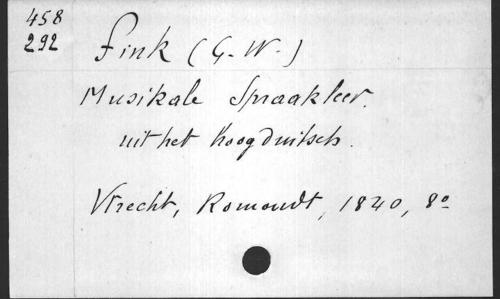 458
292
Fink (G. W.)
Musikale Spraakleer.
uit het hoogduitsch.
Utrecht, Romondt, 1840, 8o